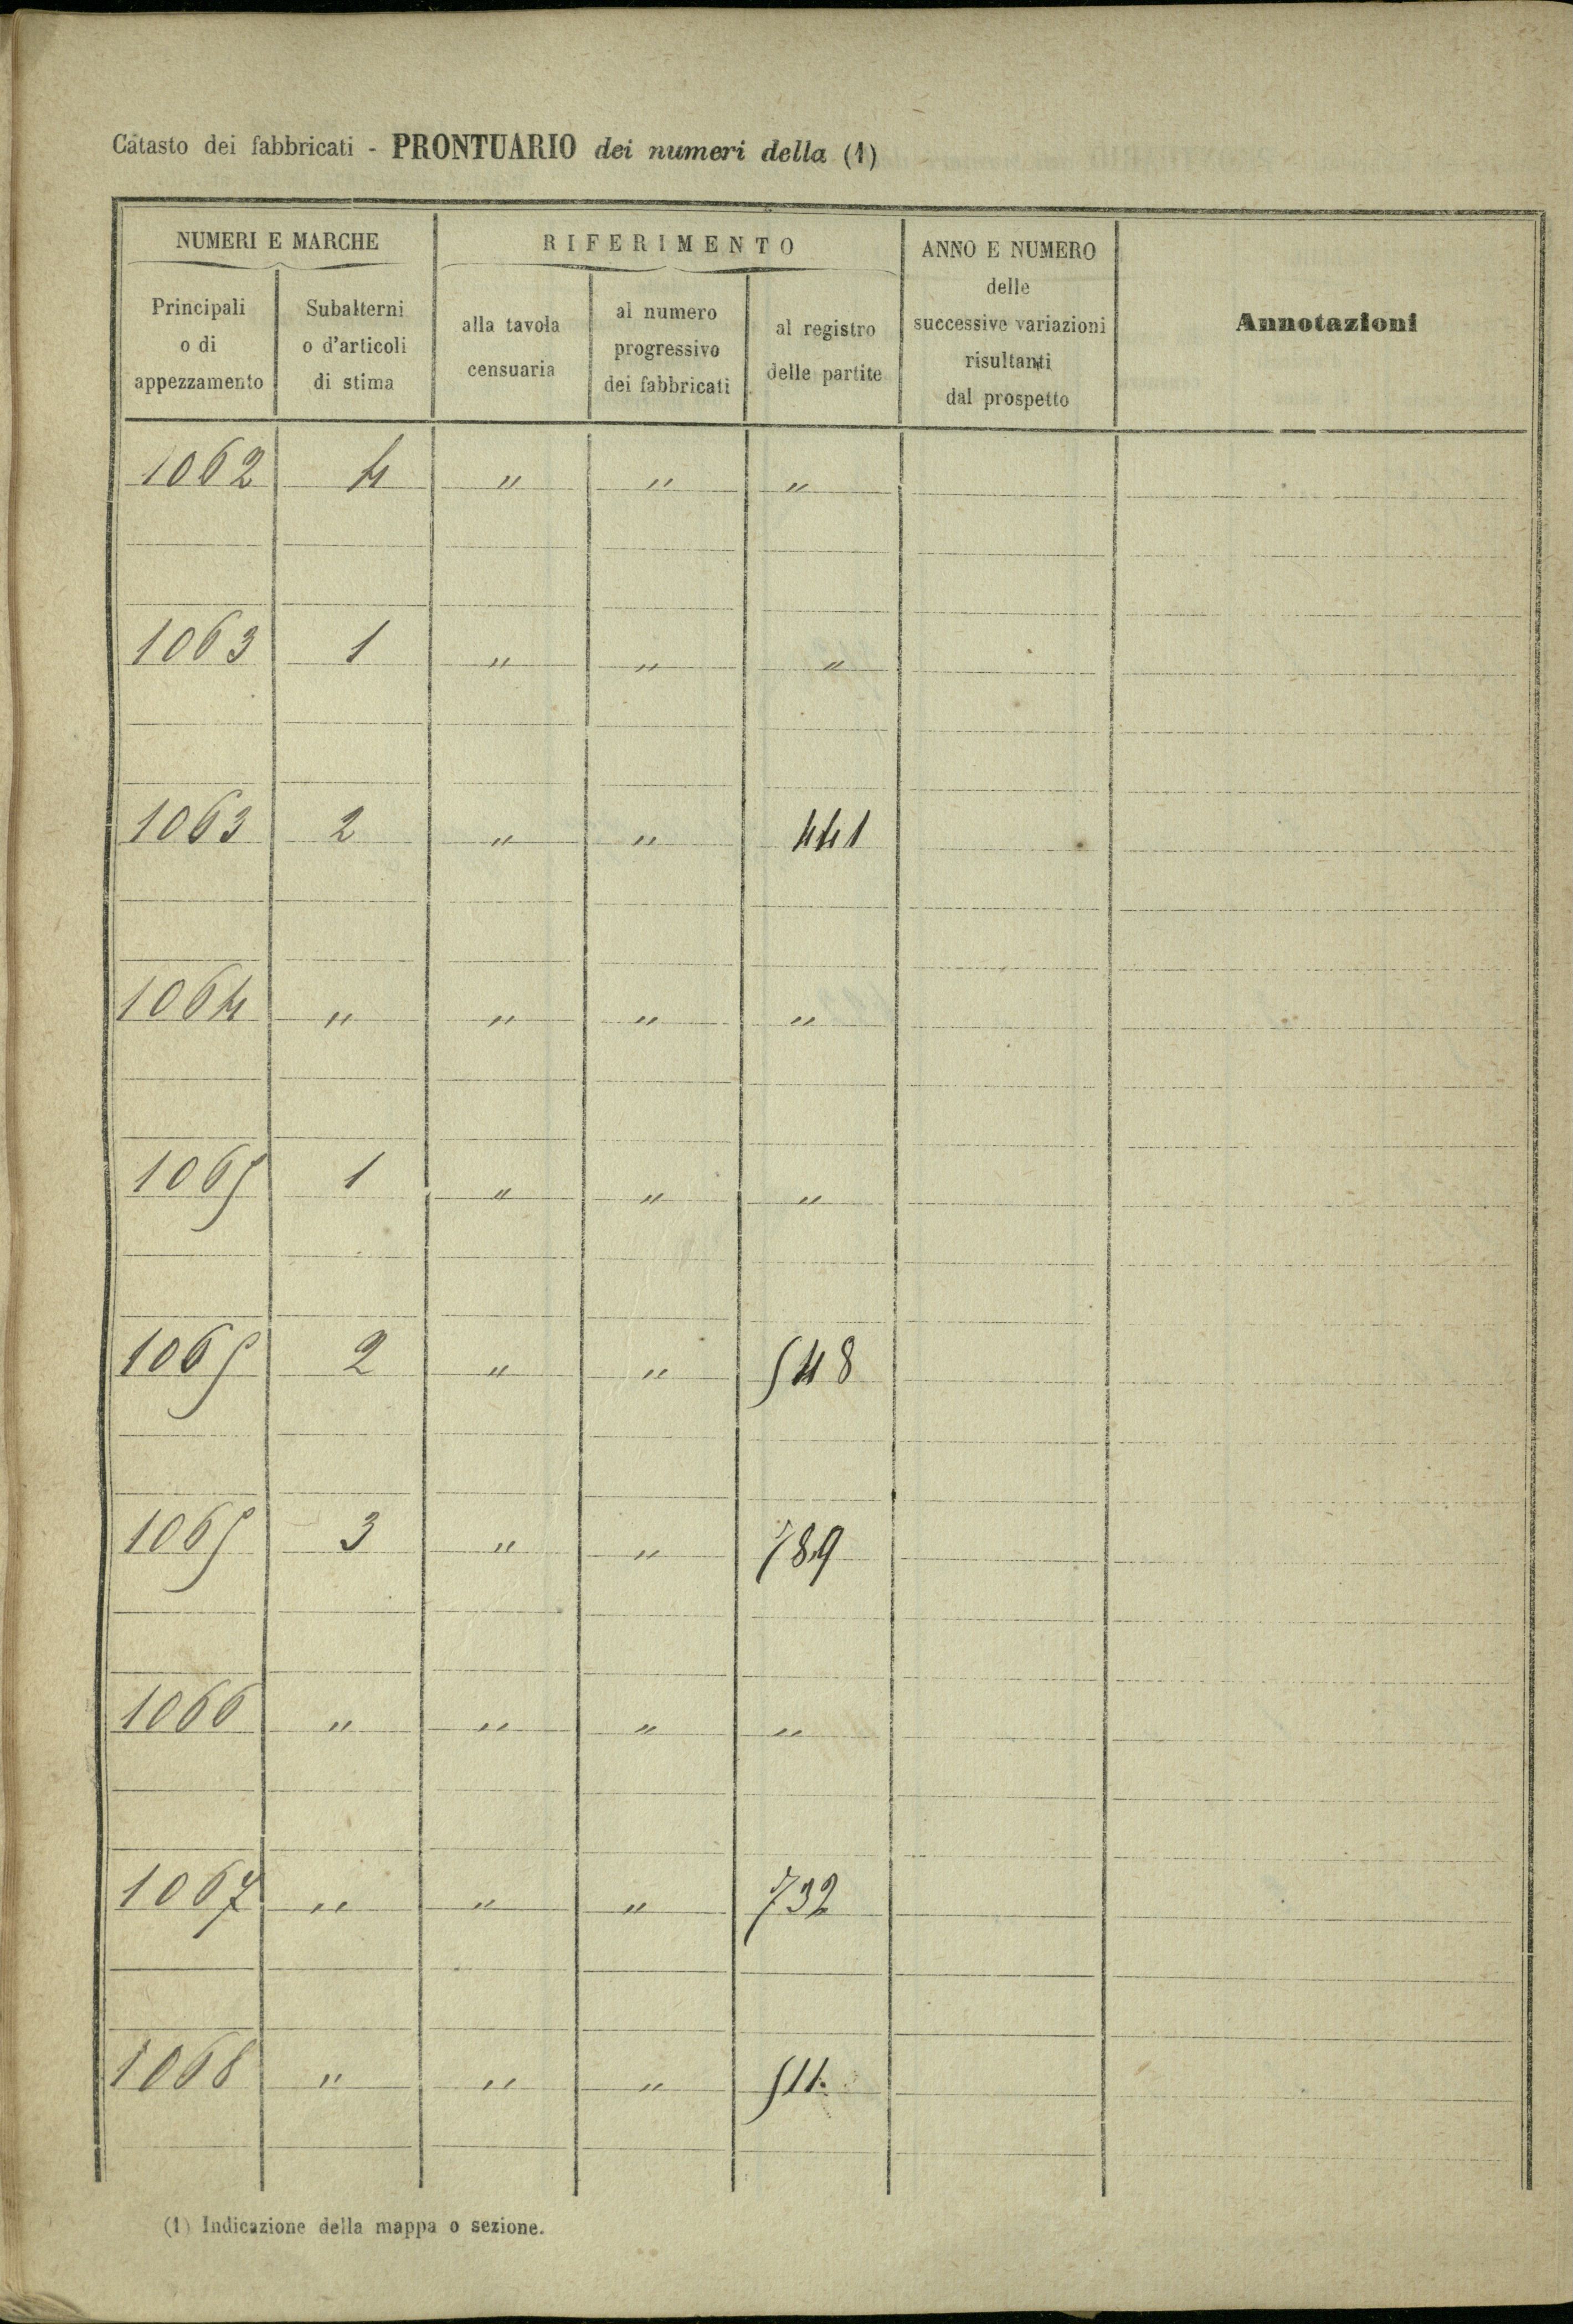 Catasto dei fabbricati - PRONTUARIO dei numeri della (1)
NUMERI E MARCHE
RIFERIMENTO
ANNO E NUMERO
delle
successive variazioni
risultanti
dal prospetto
Annotazioni
Principali
o di
appezzamento
Subalterni
o d'articoli
di stima
alla tavola
censuaria
al numero
progressivo
dei fabbricati
al registro
delle partite
1062 4 " " "
1063 1 " " "
1063 2 " " 441
1064 " " " "
1065 1 " " "
1065 2 " " 548
1065 3 " " 789
1066 " " " "
1067 " " " 732
1068 " " " 511.
(1) Indicazione della mappa o sezione.